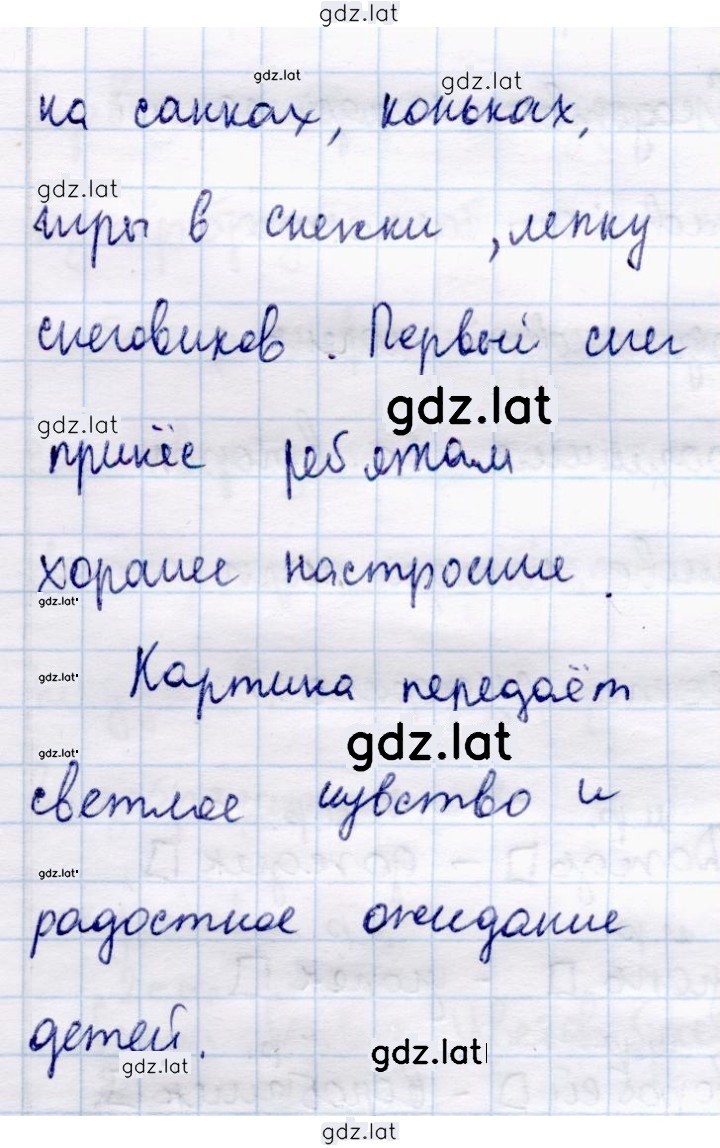 gdz.lat
gdz.lat
gdz.lat
на санках, коньках,
gdz.lat
игры в снежки, лепку
снеговиков. Первый снег
gdz.lat
gdz.lat
принёс ребятам
хорошее настроение.
gdz.lat
Картина передаёт
gdz.lat
gdz.lat
gdz.lat
светлое чувство и
gdz.lat
радостное ожидание
детей.
gdz.lat
gdz.lat
gdz.lat